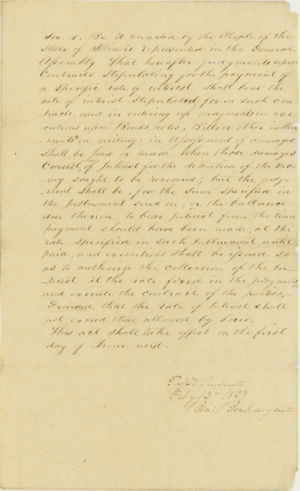 Sec 1. Be it enacted by the People of the
State of Illinois represented in the General
Assembly. That hereafter judgments upon
Contracts Stipulating for the payment of
a specific rate of interest. Shall bear the
rate of interest Stipulated for in such con
tracts and in entering up judgments
upon Bonds, notes, Bills or other instru
in writing: no assessment of damages
Shall be had or made when those damages
Consist of Interest for the detention of the mo
ney sought to be recovered; but the judg
ment Shall be, for the Sum specified in
the Instrument sued on, or the balance
due thereon, to bear Interest from the time
payment should have been made, at the
rate Specified in such Instrument until
paid, and executions shall be issued so
as to authorize the collection of the In
terest at the rate fixed in the judgment
and execute the contract of the parties,
Provided that the rate of Interest shall
not exceed that allowed by Law,
This act shall take effect on the first
day of June next.